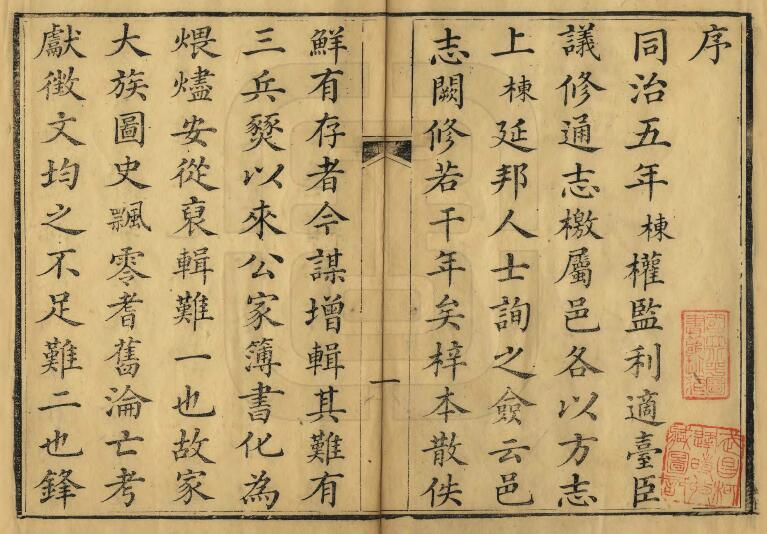 序
同治五年棟權監利適臺臣
議修通志檄屬邑各以方志
上棟延邦人士詢之僉云邑
志闕修若干年矣梓本散佚
一
鮮有存者今謀增輯其難有
三兵燹以來公家簿書化為
煨燼安從裒輯難一也故家
大族圖史飄零耆舊淪亡考
獻徵文均之不足難二也鋒